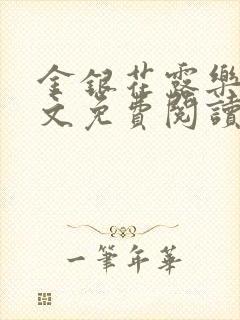 金银花露樂
文免費閱讀
一筆年華